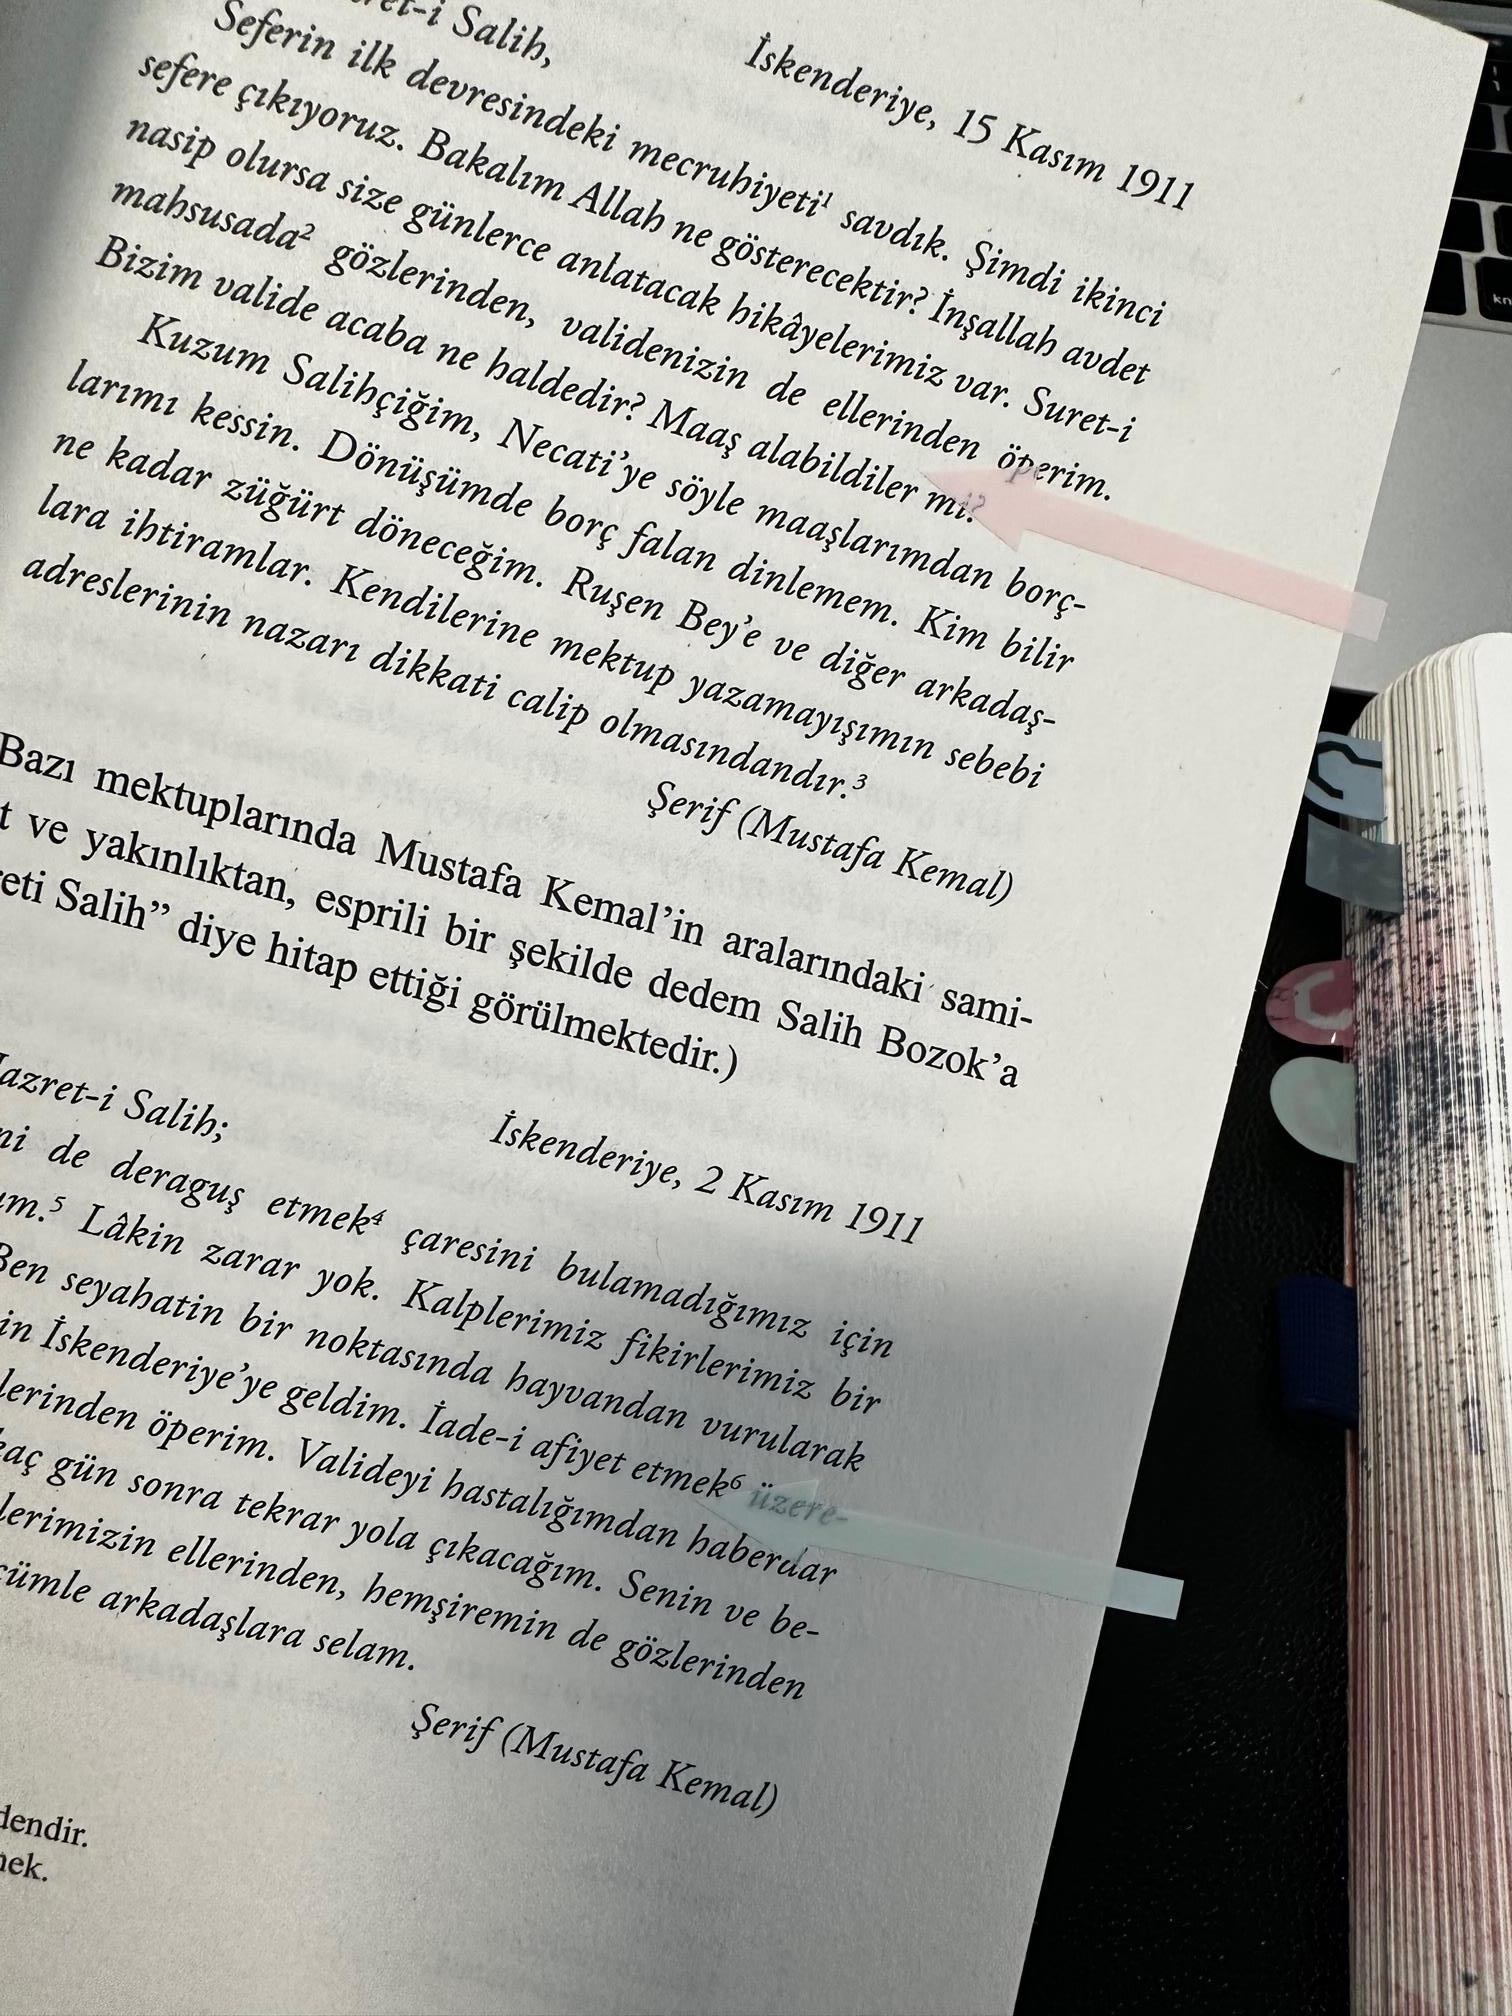 Salih,
İskenderiye, 15 Kasım 1911
Seferin ilk devresindeki mecruhiyeti¹ savdık. Şimdi ikinci
sefere çıkıyoruz. Bakalım Allah ne gösterecektir? İnşallah avdet
nasip olursa size günlerce anlatacak hikâyelerimiz var. Suret-i
mahsusada² gözlerinden, validenizin de ellerinden öperim.
Bizim valide acaba ne haldedir? Maaş alabildiler mi?
Kuzum Salihçiğim, Necati'ye söyle maaşlarımdan borç-
larımı kessin. Dönüşümde borç falan dinlemem. Kim bilir
ne kadar züğürt döneceğim. Ruşen Bey'e ve diğer arkadaş-
lara ihtiramlar. Kendilerine mektup yazamayışımın sebebi
adreslerinin nazarı dikkati calip olmasındandır.³
Şerif (Mustafa Kemal)
Bazı mektuplarında Mustafa Kemal'in aralarındaki sami-
t ve yakınlıktan, esprili bir şekilde dedem Salih Bozok'a
reti Salih" diye hitap ettiği görülmektedir.)
azret-i Salih;
İskenderiye, 2 Kasım 1911
ni de deraguş etmek⁴ çaresini bulamadığımız için
um.⁵ Lâkin zarar yok. Kalplerimiz fikirlerimiz bir
Ben seyahatin bir noktasında hayvandan vurularak
in İskenderiye'ye geldim. İade-i afiyet etmek⁶ üzere-
lerinden öperim. Valideyi hastalığımdan haberdar
kaç gün sonra tekrar yola çıkacağım. Senin ve be-
lerimizin ellerinden, hemşiremin de gözlerinden
cümle arkadaşlara selam.
Şerif (Mustafa Kemal)
dendir.
mek.